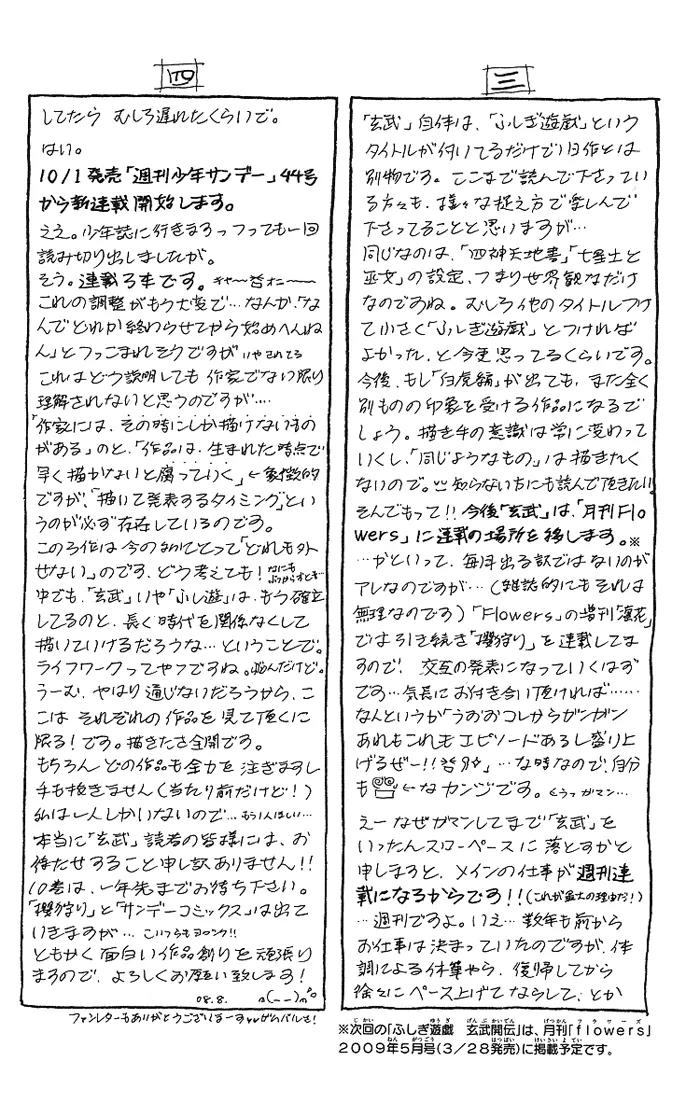 三
「玄武」自体は、「ふしぎ遊戯」という
タイトルが付いてるだけで旧作とは
別物です。ここまで読んで下さってい
る方々も、様々な捉え方で楽しんで
下さってることと思いますが…
同じなのは、「四神天地書」「七星士と
巫女」の設定、つまり世界観なだけ
なのですね。むしろ他のタイトルつけ
て小さく「ふしぎ遊戯」とつければ
よかった、と今更思ってるくらいです。
今後、もし「白虎編」が出ても、また全く
別ものの印象を受ける作品になるで
しょう。描き手の意識は常に変わって
いくし、「同じようなもの」は描きたく
ないので。知らない方にも読んで頂きたい!!
そんでもって!!今後「玄武」は、「月刊Flo
wers」に連載の場所を移します。※
…かといって、毎月出る訳ではないのが
アレなのですが…(雑誌的にもそれは
無理なのです)「Flowers」の増刊「凜花」
でも引き続き「櫻狩り」を連載してま
すので、交互の発表になっていくはず
です…気長にお付き合い頂ければ……
なんというか「うおおコレからガンガン
あれもこれもエピソードあるし盛り上
げるぜー!!」…な時なので、自分
も ←なカンジです。くうっガマン…
えー なぜガマンしてまで「玄武」を
いったんスローペースに落とすかと
申しますと、メインの仕事が週刊連
載になるからです!!(これが最大の理由だ!)
…週刊ですよ。いえ…数年も前から
お仕事は決まっていたのですが、体
調による休筆やら、復帰してから
徐々にペース上げてならして、とか
※次回の「ふしぎ遊戯 玄武開伝」は、月刊「flowers」
2009年5月号(3/28発売)に掲載予定です。
四
してたら むしろ遅れたくらいで。
はい。
10/1発売「週刊少年サンデー」44号
から新連載開始します。
ええ。少年誌に行きますっつっても一回
読み切り出しましたが。
そう。連載3本です。
これの調整がもう大変で…なんか、「な
んでどれか終わらせてから始めへんね
ん」とツっこまれそうですが いやされてる
これはどう説明しても作家でない限り
理解されないと思うのですが…
「作家には、その時にしか描けないもの
がある」のと、「作品は、生まれた時点で
早く描かないと腐っていく」←象徴的
ですが、「描いて発表するタイミング」とい
うのが必ず存在しているのです。
この3作は今の私にとって「どれも外
せない」のです、どう考えても!
中でも、「玄武」いや「ふし遊」は、もう確立
してるのと、長く時代を関係なくして
描いていけるだろうな…ということで。
ライフワークってやつですね。悩んだけど。
うーむ、やはり通じないだろうから、こ
こは それぞれの作品を見て頂くに
限る!です。描きたさ全開です。
もちろん どの作品も全力を注ぎますし
手も抜きません(当たり前だけど!)
私は一人しかいないので…もう1人ほしい…
本当に「玄武」読者の皆様には、お
待たせすること申し訳ありません!!
10巻は、一年先までお待ち下さい。
「櫻狩り」と「サンデーコミックス」は出て
いきますが… こいつらもヨロシク!!
ともかく面白い作品創りを頑張り
ますので、よろしくお願い致します!
08.8.
ファンレターもありがとうございまーすvvガンバルさ!